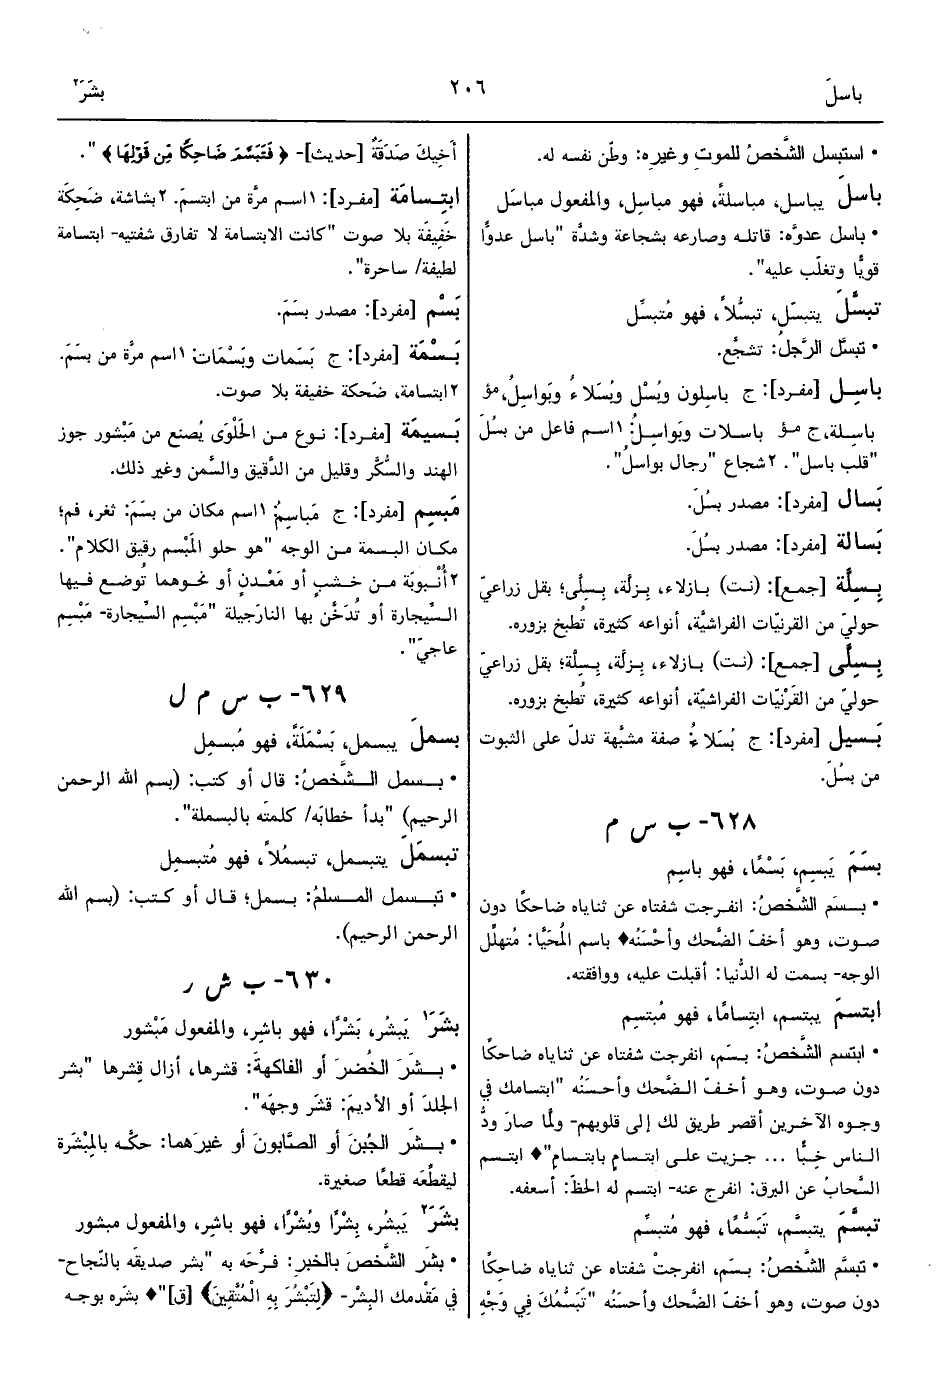 باسلَ
٢٠٦
بشَرَ٢
• استبسل الشَّخصُ للموت وغيره: وطّن نفسه له.
باسلَ يباسل، مباسلةً، فهو مباسِل، والمفعول مباسَل
• باسل عدوَّه: قاتله وصارعه بشجاعة وشدَّة "باسل عدوًّا
قويًّا وتغلّب عليه".
تبسَّلَ يتبسّل، تبسُّلاً، فهو مُتبسِّل
• تبسَّل الرَّجلُ: تشجَّع.
باسِل [مفرد]: ج باسِلون وبُسْل وبُسَلاءُ وبَواسِلُ، مؤ
باسِلة، ج مؤ باسلات وبَواسِلُ: ١اسم فاعل من بسُلَ
"قلب باسل". ٢شجاع "رجال بواسلُ".
بَسال [مفرد]: مصدر بسُلَ.
بَسالة [مفرد]: مصدر بسُلَ.
بِسِلَّة [جمع]: (نت) بازلاء، بِزلَّة، بِسِلَّى؛ بقل زراعيّ
حوليّ من القرنيّات الفراشيَّة، أنواعه كثيرة، تُطبخ بزوره.
بِسِلَّى [جمع]: (نت) بازلاء، بِزلَّة، بِسِلَّة؛ بقل زراعيّ
حوليّ من القَرْنيّات الفراشيّة، أنواعه كثيرة، تُطبخ بزوره.
بَسيل [مفرد]: ج بُسَلاءُ: صفة مشبَّهة تدلّ على الثبوت
من بسُلَ.
٦٢٨- ب س م
بسَمَ يَبسِم، بَسْمًا، فهو باسِم
• بسَم الشَّخصُ: انفرجت شفتاه عن ثناياه ضاحكًا دون
صوت، وهو أخفّ الضَّحك وأحْسَنُه♦ باسم المُحَيَّا: مُتهلِّل
الوجه- بسمت له الدُّنيا: أقبلت عليه، ووافقته.
ابتسمَ يبتسم، ابتِسامًا، فهو مُبتسِم
• ابتسم الشَّخصُ: بسَم، انفرجت شفتاه عن ثناياه ضاحكًا
دون صوت، وهو أخفّ الضَّحك وأحسَنُه "ابتسامك في
وجوه الآخرين أقصر طريق لك إلى قلوبهم- ولمّا صارَ ودُّ
الناس خِبًّا ... جزيت على ابتسامٍ بابتسام"♦ ابتسم
السَّحابُ عن البرق: انفرج عنه- ابتسم له الحظّ: أسعفه.
تبسَّمَ يتبسَّم، تَبَسُّمًا، فهو مُتبسِّم
• تبسَّم الشَّخصُ: بسَم، انفرجتْ شفتاه عن ثناياه ضاحكًا
دون صوت، وهو أخفّ الضَّحك وأحسَنُه "تَبَسُّمُكَ فِي وَجْهِ
أَخِيكَ صَدَقَةٌ [حديث]- ﴿فَتَبَسَّمَ ضَاحِكًا مِّن قَوْلِهَا﴾".
ابتِسامَة [مفرد]: ١اسم مرَّة من ابتسمَ. ٢بشاشة، ضَحِكَة
خَفِيفَة بلا صوت "كانت الابتسامة لا تفارق شفتيه- ابتسامة
لطيفة/ ساحرة".
بَسْم [مفرد]: مصدر بسَمَ.
بَسْمَة [مفرد]: ج بَسَمات وبَسْمات: ١اسم مرَّة من بسَمَ.
٢ابتسامة، ضَحكة خفيفة بلا صوت.
بَسيمَة [مفرد]: نوع من الحَلْوَى يُصنع من مَبْشور جوز
الهند والسُّكَّر وقليل من الدَّقيق والسَّمن وغير ذلك.
مَبسِم [مفرد]: ج مَباسِمُ: ١اسم مكان من بسَمَ: ثغر، فم؛
مكان البسمة من الوجه "هو حلو المَبْسم رقيق الكلام".
٢أُنْبوبَة من خشب أو مَعْدن أو نحوهما تُوضع فيها
السِّيجارة أو تُدَخَّن بها النارَجيلة "مَبْسِم السِّيجارة- مَبْسِم
عاجيّ".
٦٢٩- ب س م ل
بسملَ يبسمل، بَسْمَلَةً، فهو مُبسمِل
• بسمل الشَّخصُ: قال أو كتب: (بسم الله الرحمن
الرحيم) "بدأ خطابَه/ كلمتَه بالبسملة".
تبسمَلَ يتبسمل، تبسمُلاً، فهو مُتبسمِل
• تبسمل المسلمُ: بسمل؛ قال أو كتب: (بسم الله
الرحمن الرحيم).
٦٣٠- ب ش ر
بشَرَ١ يَبشُر، بَشْرًا، فهو باشِر، والمفعول مَبْشور
• بشَرَ الخُضرَ أو الفاكهةَ: قشرها، أزال قِشرها "بشر
الجلدَ أو الأديمَ: قشَر وجهَه".
• بشَر الجُبنَ أو الصَّابونَ أو غيرَهما: حكَّه بالمِبْشَرة
ليقطِّعَه قطعًا صغيرة.
بشَرَ٢ يَبشُر، بِشْرًا وبُشْرًا، فهو باشِر، والمفعول مبشور
• بشَر الشَّخصَ بالخبرِ: فرَّحَه به "بشر صديقَه بالنَّجاح-
في مَقْدمك البِشْر- ﴿لِتَبْشُرَ بِهِ الْمُتَّقِينَ﴾ [ق]"♦ بشَره بوجه